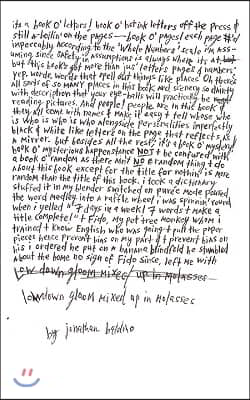 its a book o' letters! book o' hot ink letters off the press &
still a-rollin' on the pages — book o' pages! each page #'d
impeccably according to the 'Whole Numbers' scale i'm ass-
uming since safety in assumptions is always where its at. but
but this book's got more than just 'letters pages & numbers'
yep. words, words that spell out things like places. Oh there's
all sorts of so MANY places in this book and scenery so dainty
with description that your eye-balls will practically be
reading pictures. And people! people are in this book &
they all come with names & make it easy t tell whose who
is who is who alongside personalities imperfectly
black & white like letters on the page that reflect as
a mirror. but besides all the rest? it's a book o' mystery!
book o' mysterious happenstance NOT t be confused with
a book o' random as there aint NO random thing t do
along this book except for the title for nothin' is more
random than the title of this book. i took a dictionary
stuffed it in my blender switched on pureé mode placed
the word medley into a raffle wheel i was spinnin' round
when i yelled "7 days in a week! 7 words t make a
title complete!" t Fido, my pet tree monkey whom i
trained t know English who was going t pull the paper
pieces hence prevent bias on my part & t prevent bias on
his i ordered he put on a banana blindfold he stumbled
about the home no sign of Fido since, left me with
Low down gloom mixed up in Molasses
lowdown gloom mixed up in molasses
by jonathan baldino